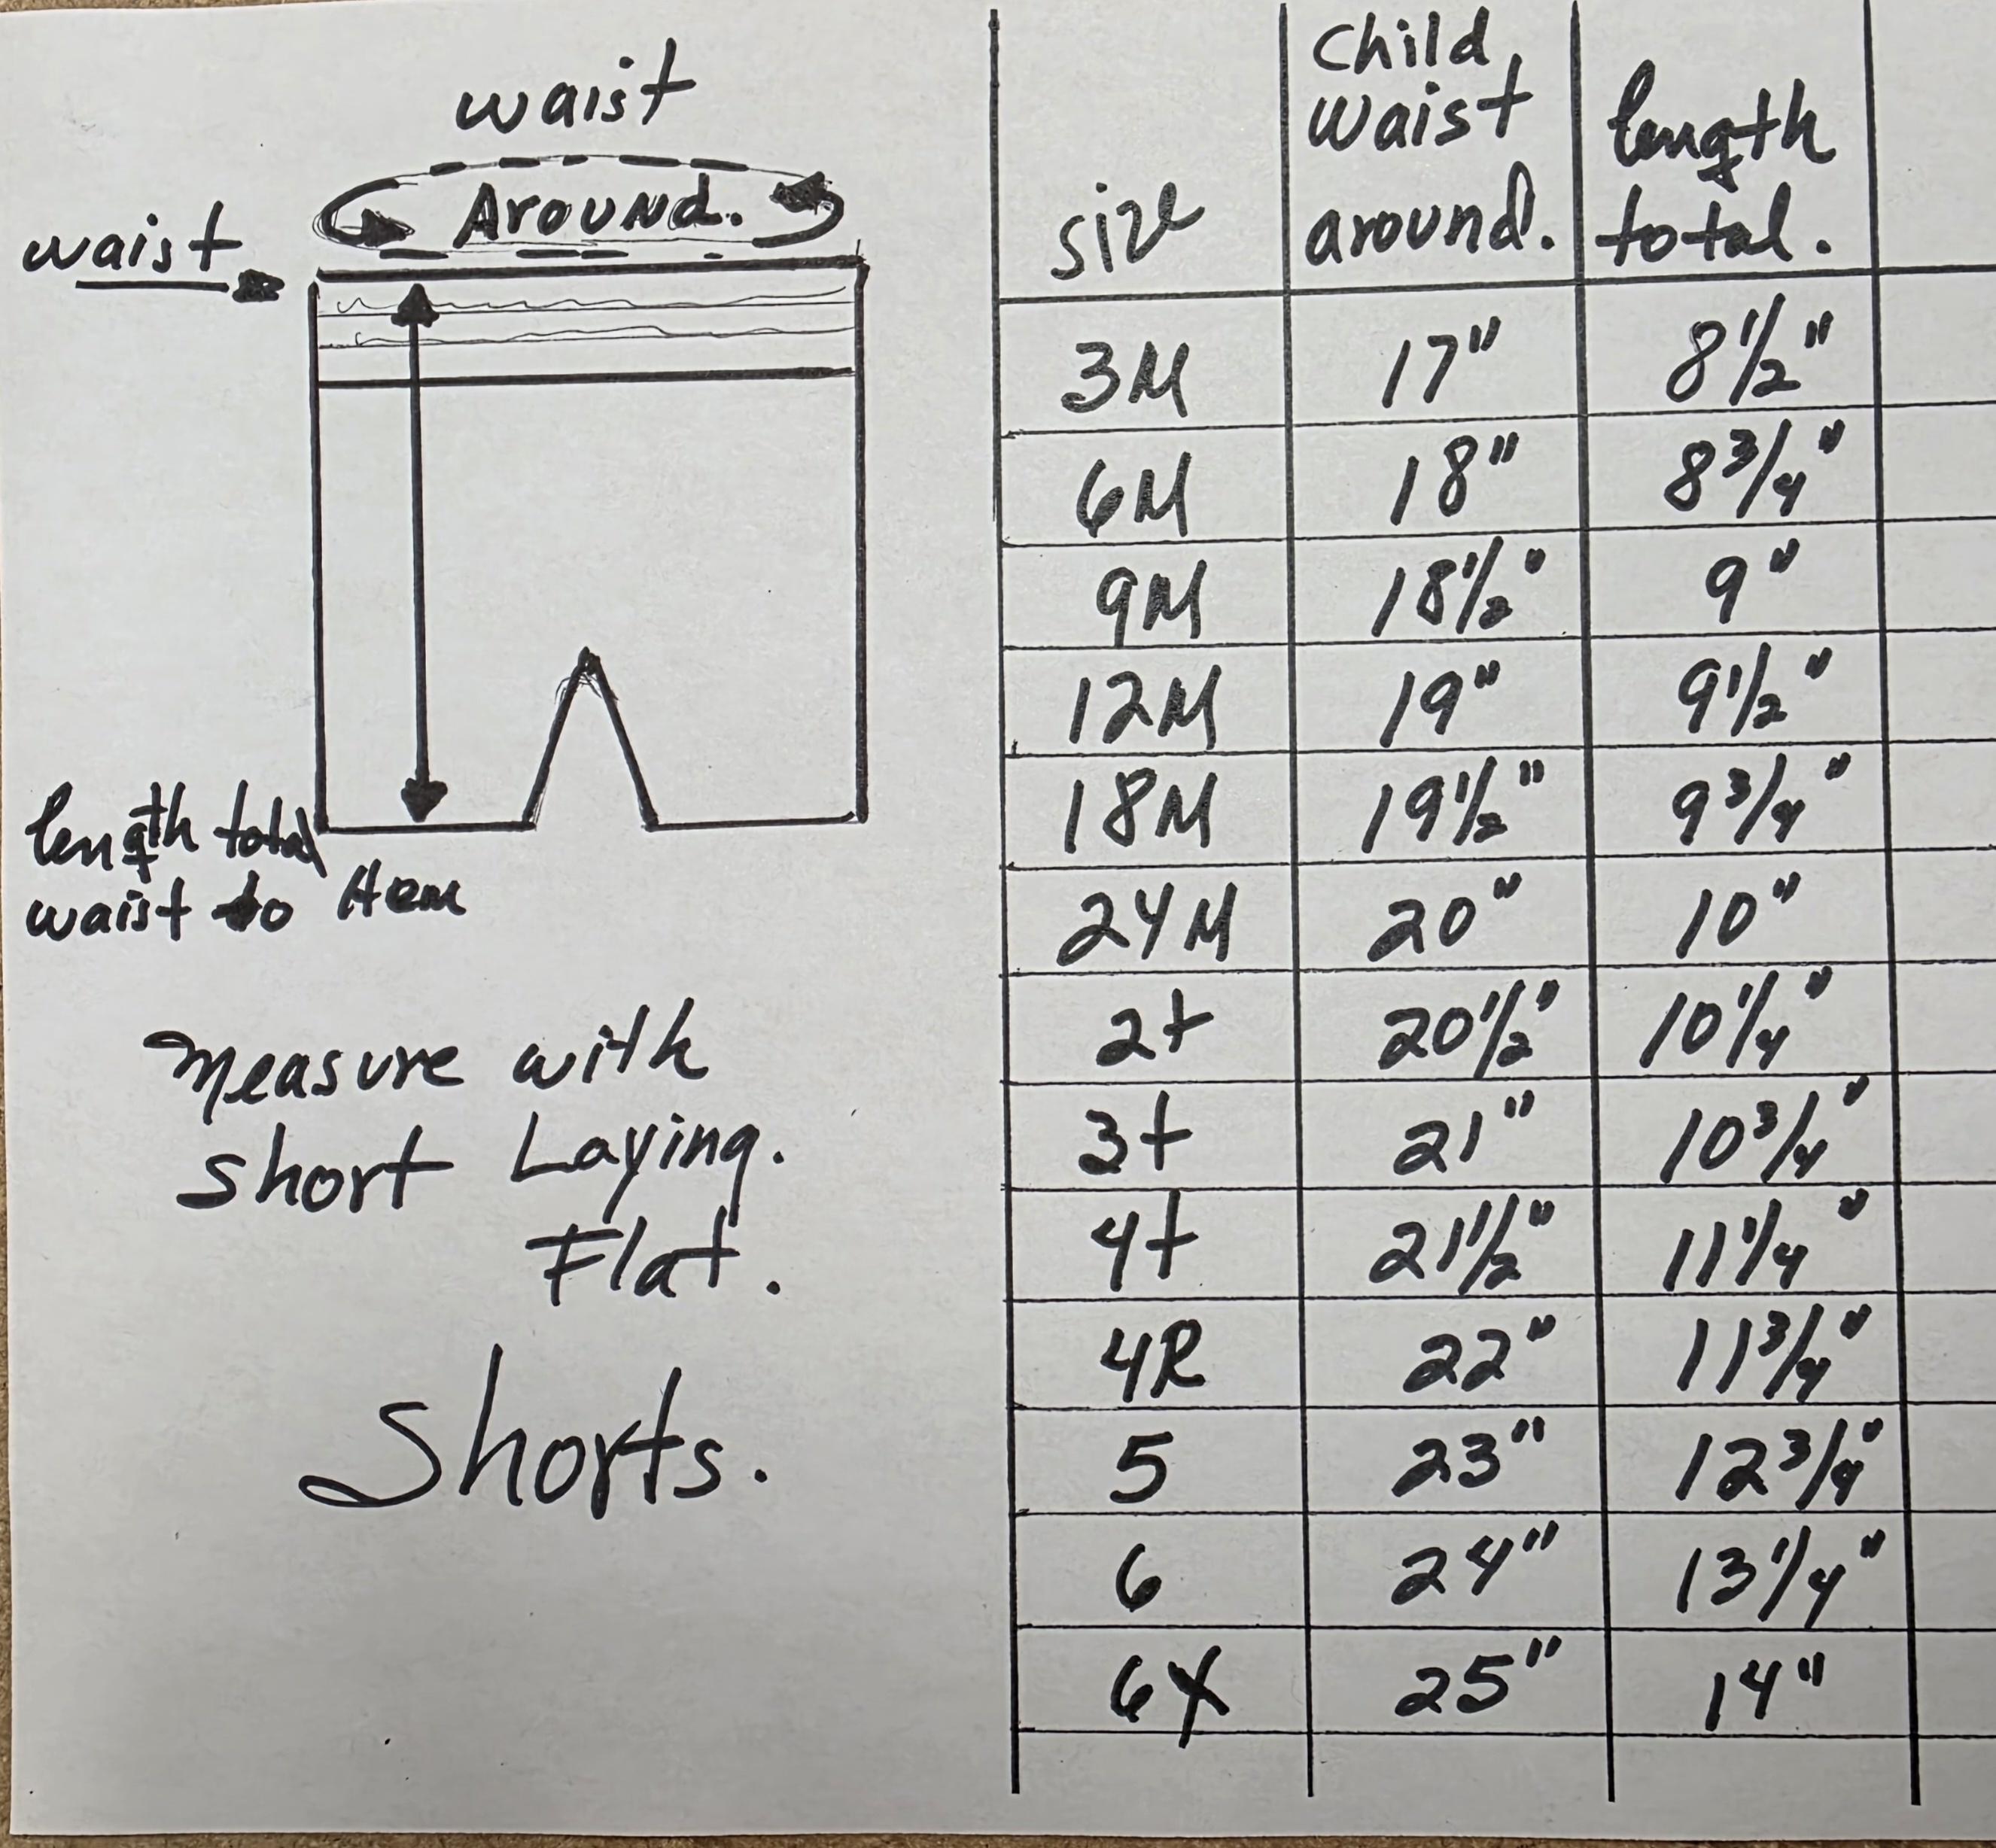 waist
Around.
waist
length total
waist to Hem
Measure with
short Laying.
Flat.
Shorts.
size Child waist around. length total.
3M 17" 8 1/2"
6M 18" 8 3/4"
9M 18 1/2" 9"
12M 19" 9 1/2"
18M 19 1/2" 9 3/4"
24M 20" 10"
2t 20 1/2" 10 1/4"
3t 21" 10 3/4"
4t 21 1/2" 11 1/4"
4R 22" 11 3/4"
5 23" 12 3/4"
6 24" 13 1/4"
6X 25" 14"